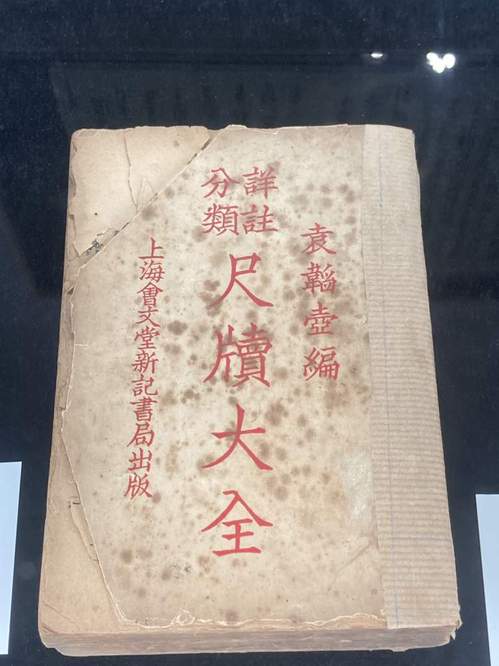 袁韜壺編
詳註
分類
尺牘大全
上海會文堂新記書局出版